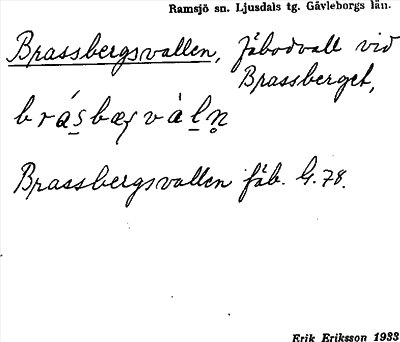 Ramsjö sn. Ljusdals tg. Gävleborgs län.
Brassbergsvallen, fäbodvall vid
Brassberget,
Brassbergsvallen fäb. G.78.
Erik Eriksson 1933